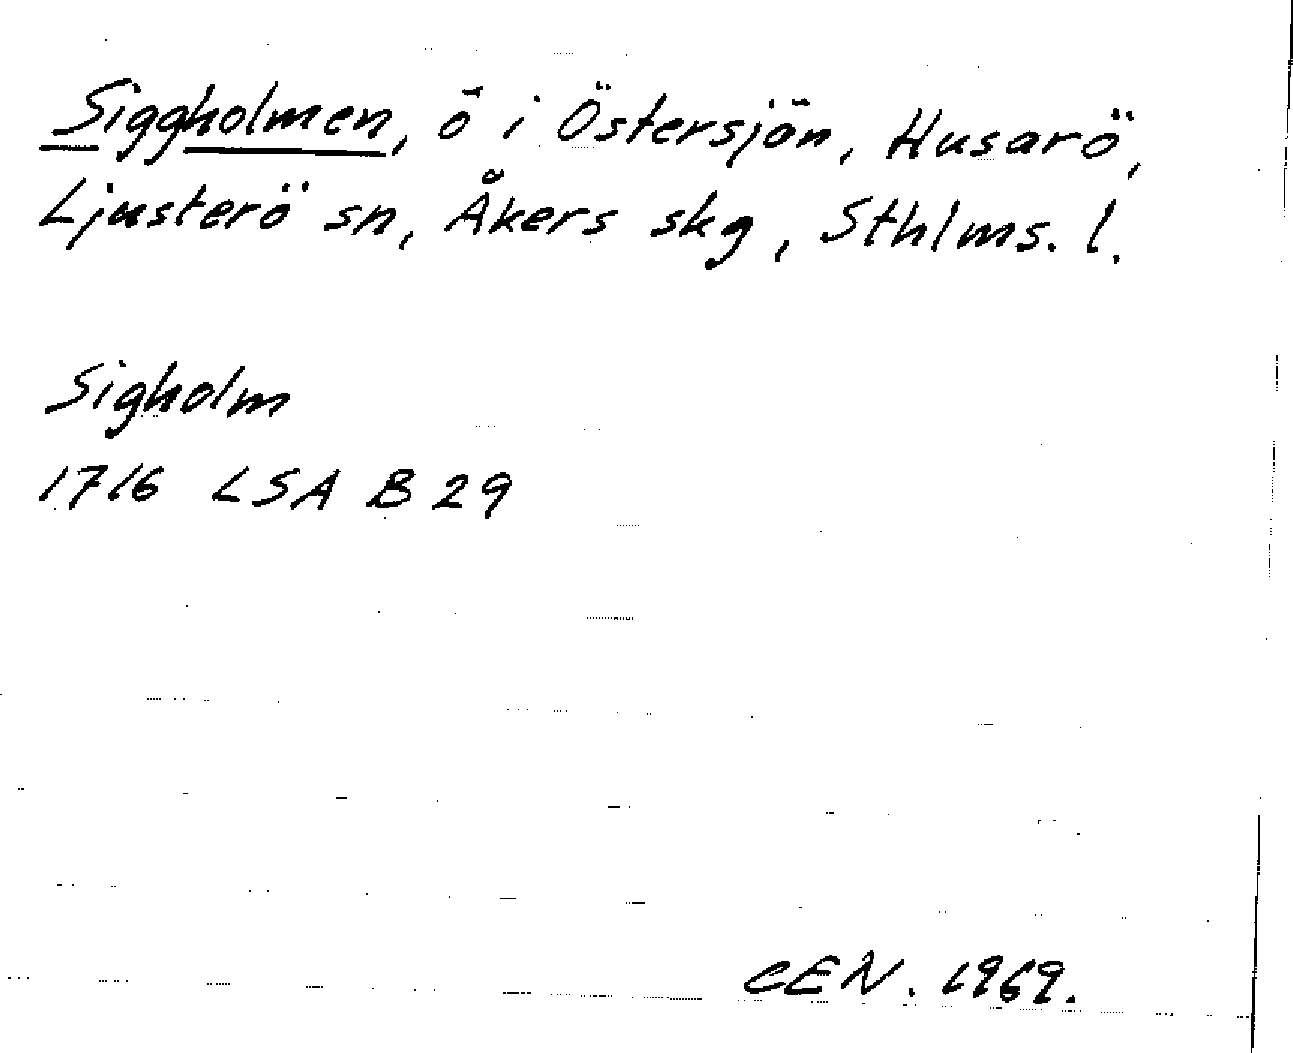 Siggholmen, ö i Östersjön, Husarö,
Ljusterö sn, Åkers skg, Sthlms. l.
Sigholm
1716 LSA B 29
CEN. 1969.